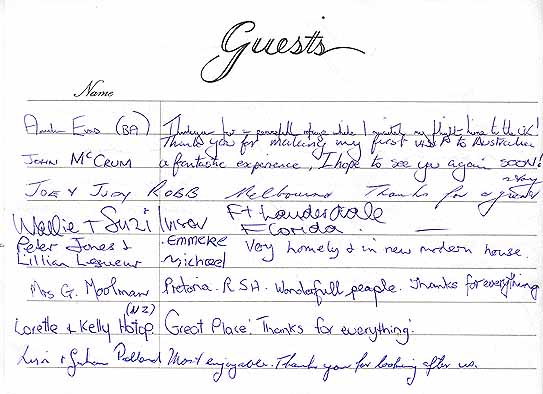 Guests
Name
(BA) Thankyou for a peaceful refuge while I my flight home to the UK!
Thank you for making my first visit to Australia
JOHN McCRUM a fantastic experience, I hope to see you again SOON!
JOE & JUDY ROBB Melbourne Thanks for a great
a stay
Wallie + Suzi Ft Lauderdale
Florida. —
Peter Jones & EMMERE Very homely & in new modern house.
Lillian Michael
Mrs G. Moolman Pretoria. RSA. Wonderfull people. Thanks for everything
(NZ)
Lorette & Kelly Hotop Great Place! Thanks for everything!
+ Graham Most enjoyable. Thank you for looking after us.